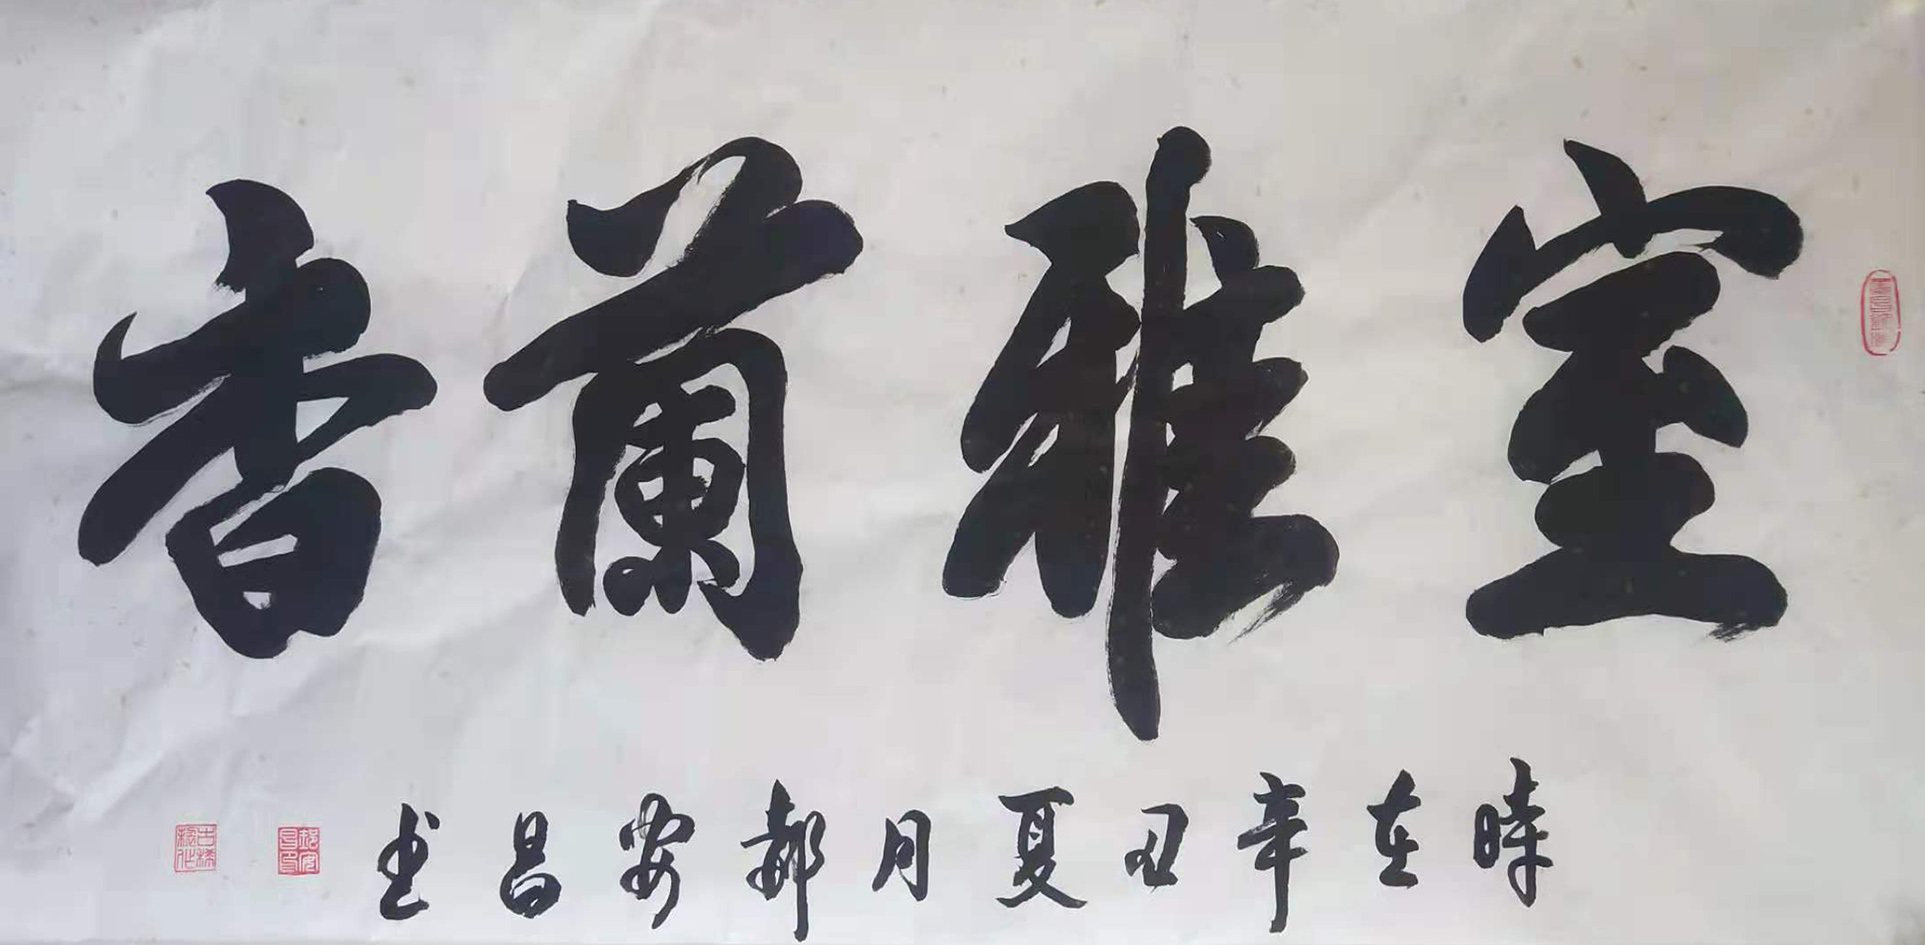 室雅蘭香
時在辛丑夏月郝安昌书